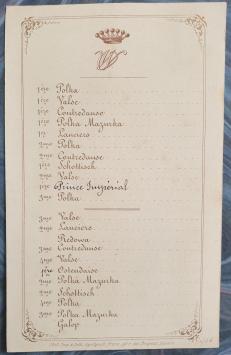 1ère Polka
1ère Valse
1ère Contredanse
1ère Polka Mazurka
1er Lanciers
2me Polka
2me Contredanse
1ère Schottisch
2me Valse
1ère Prince Impérial
3me Polka
3me Valse
2me Lanciers
Redowa
3me Contredanse
4me Valse
1ère Ostendaise
2me Polka Mazurka
2me Schottisch
4me Polka
3me Polka Mazurka
Galop